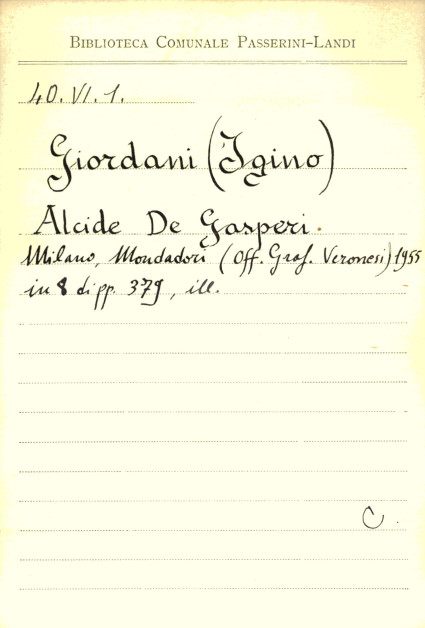 Biblioteca Comunale Passerini-Landi
40.VI.1.
Giordani (Igino)
Alcide De Gasperi.
Milano, Mondadori (Off. Graf. Veronesi) 1955
in 8 di pp. 379, ill.
C.